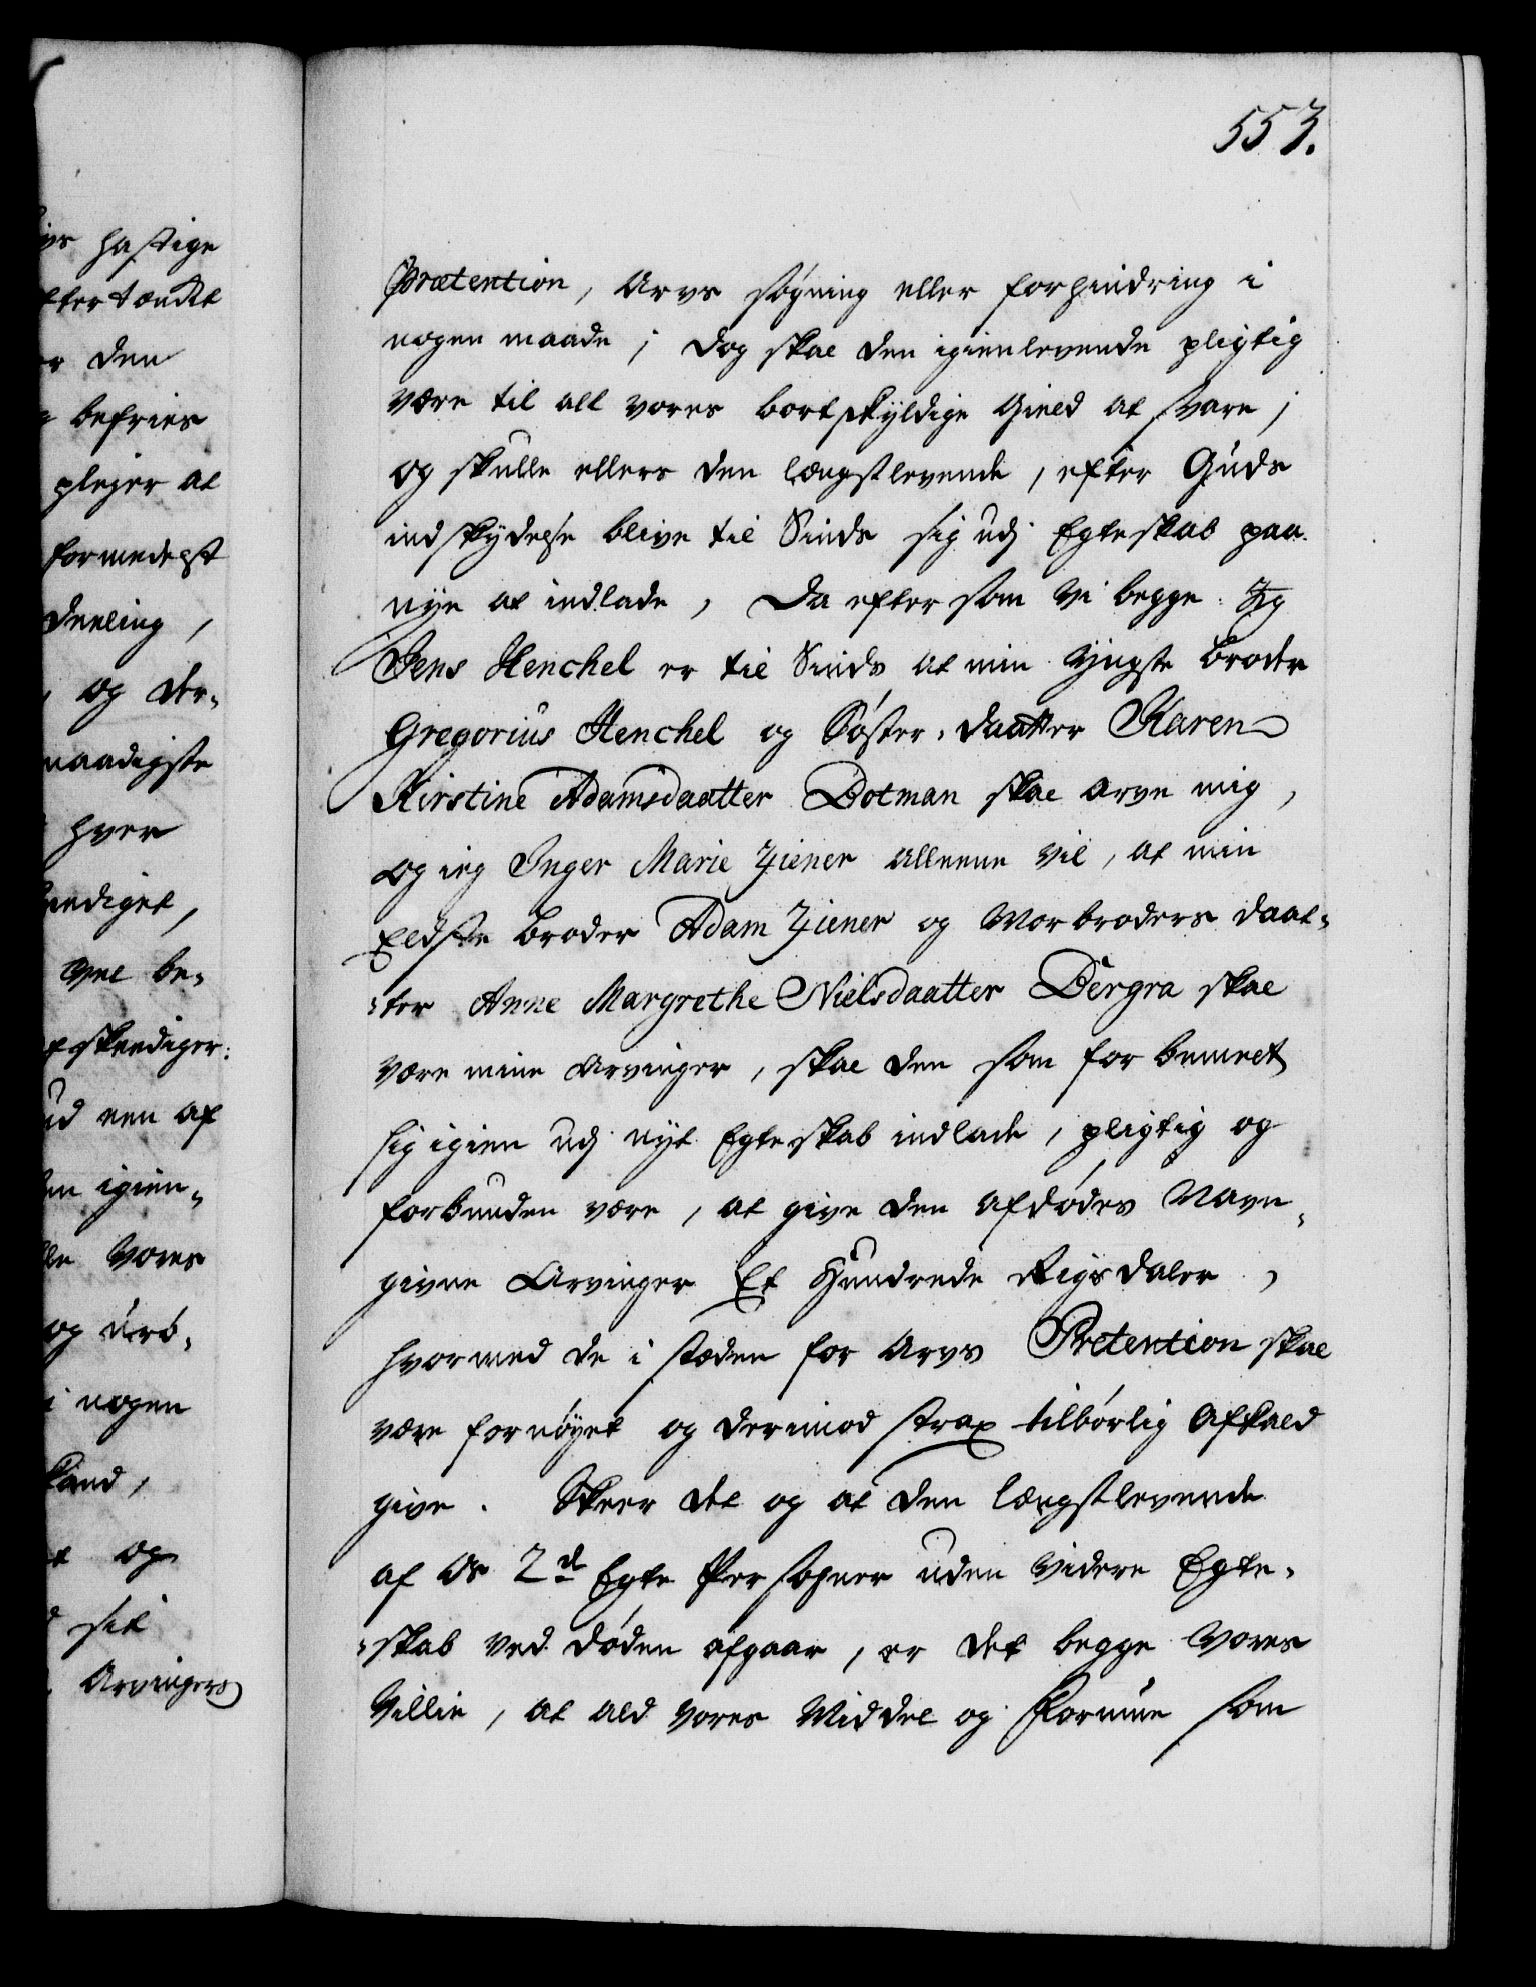 553.
Prætention, Arvs søgning eller forhindring i
nogen maade; dog skal den igienlevende pligtig
være til alt vores bortskyldige Gield at svare;
og skulle ellers den længstlevende, efter Guds
indskydelse blive til Sinds sig udj Egteskab paa
nye at indlade, Da eftersom vi begge Jeg
Jens Henchel er til Sinds at min Yngste broder
Gregorius Henchel og Søster-daatter Karen
Kirstine Adamsdaatter Dotman skal arve mig,
og ieg Inger Marie Ziener alleene vil, at min
Eldste broder Adam Ziener og Morbroders daat-
-ter Anne Margrethe Nielsdaatter Dergra skal
være mine Arvinger, skal den som forbemeet
sig igien udj nyt Egteskab indlade, pligtig og
forbunden være, at give den afdødes Navn-
givne Arvinger Et Hundrede Rigsdaler,
hvormed de i stæden for Arvs Prætention skal
være fornøyet og derimod strax tilbørlig Afkald
give. Skeer det og at den længstlevende
af os 2de Egte Persohner uden videre Egte-
-skab ved døden afgaar, er det begge vores
Villie, at ald vores Middel og Formue som
ivs hastige
ftertænkt
r den
befries
plejer at
formedelst
deeling,
og der-
naadigste
hver
vel be-
ud een af
en igien-
lle vores
og urø-
i nogen
og
sit
Arvingers